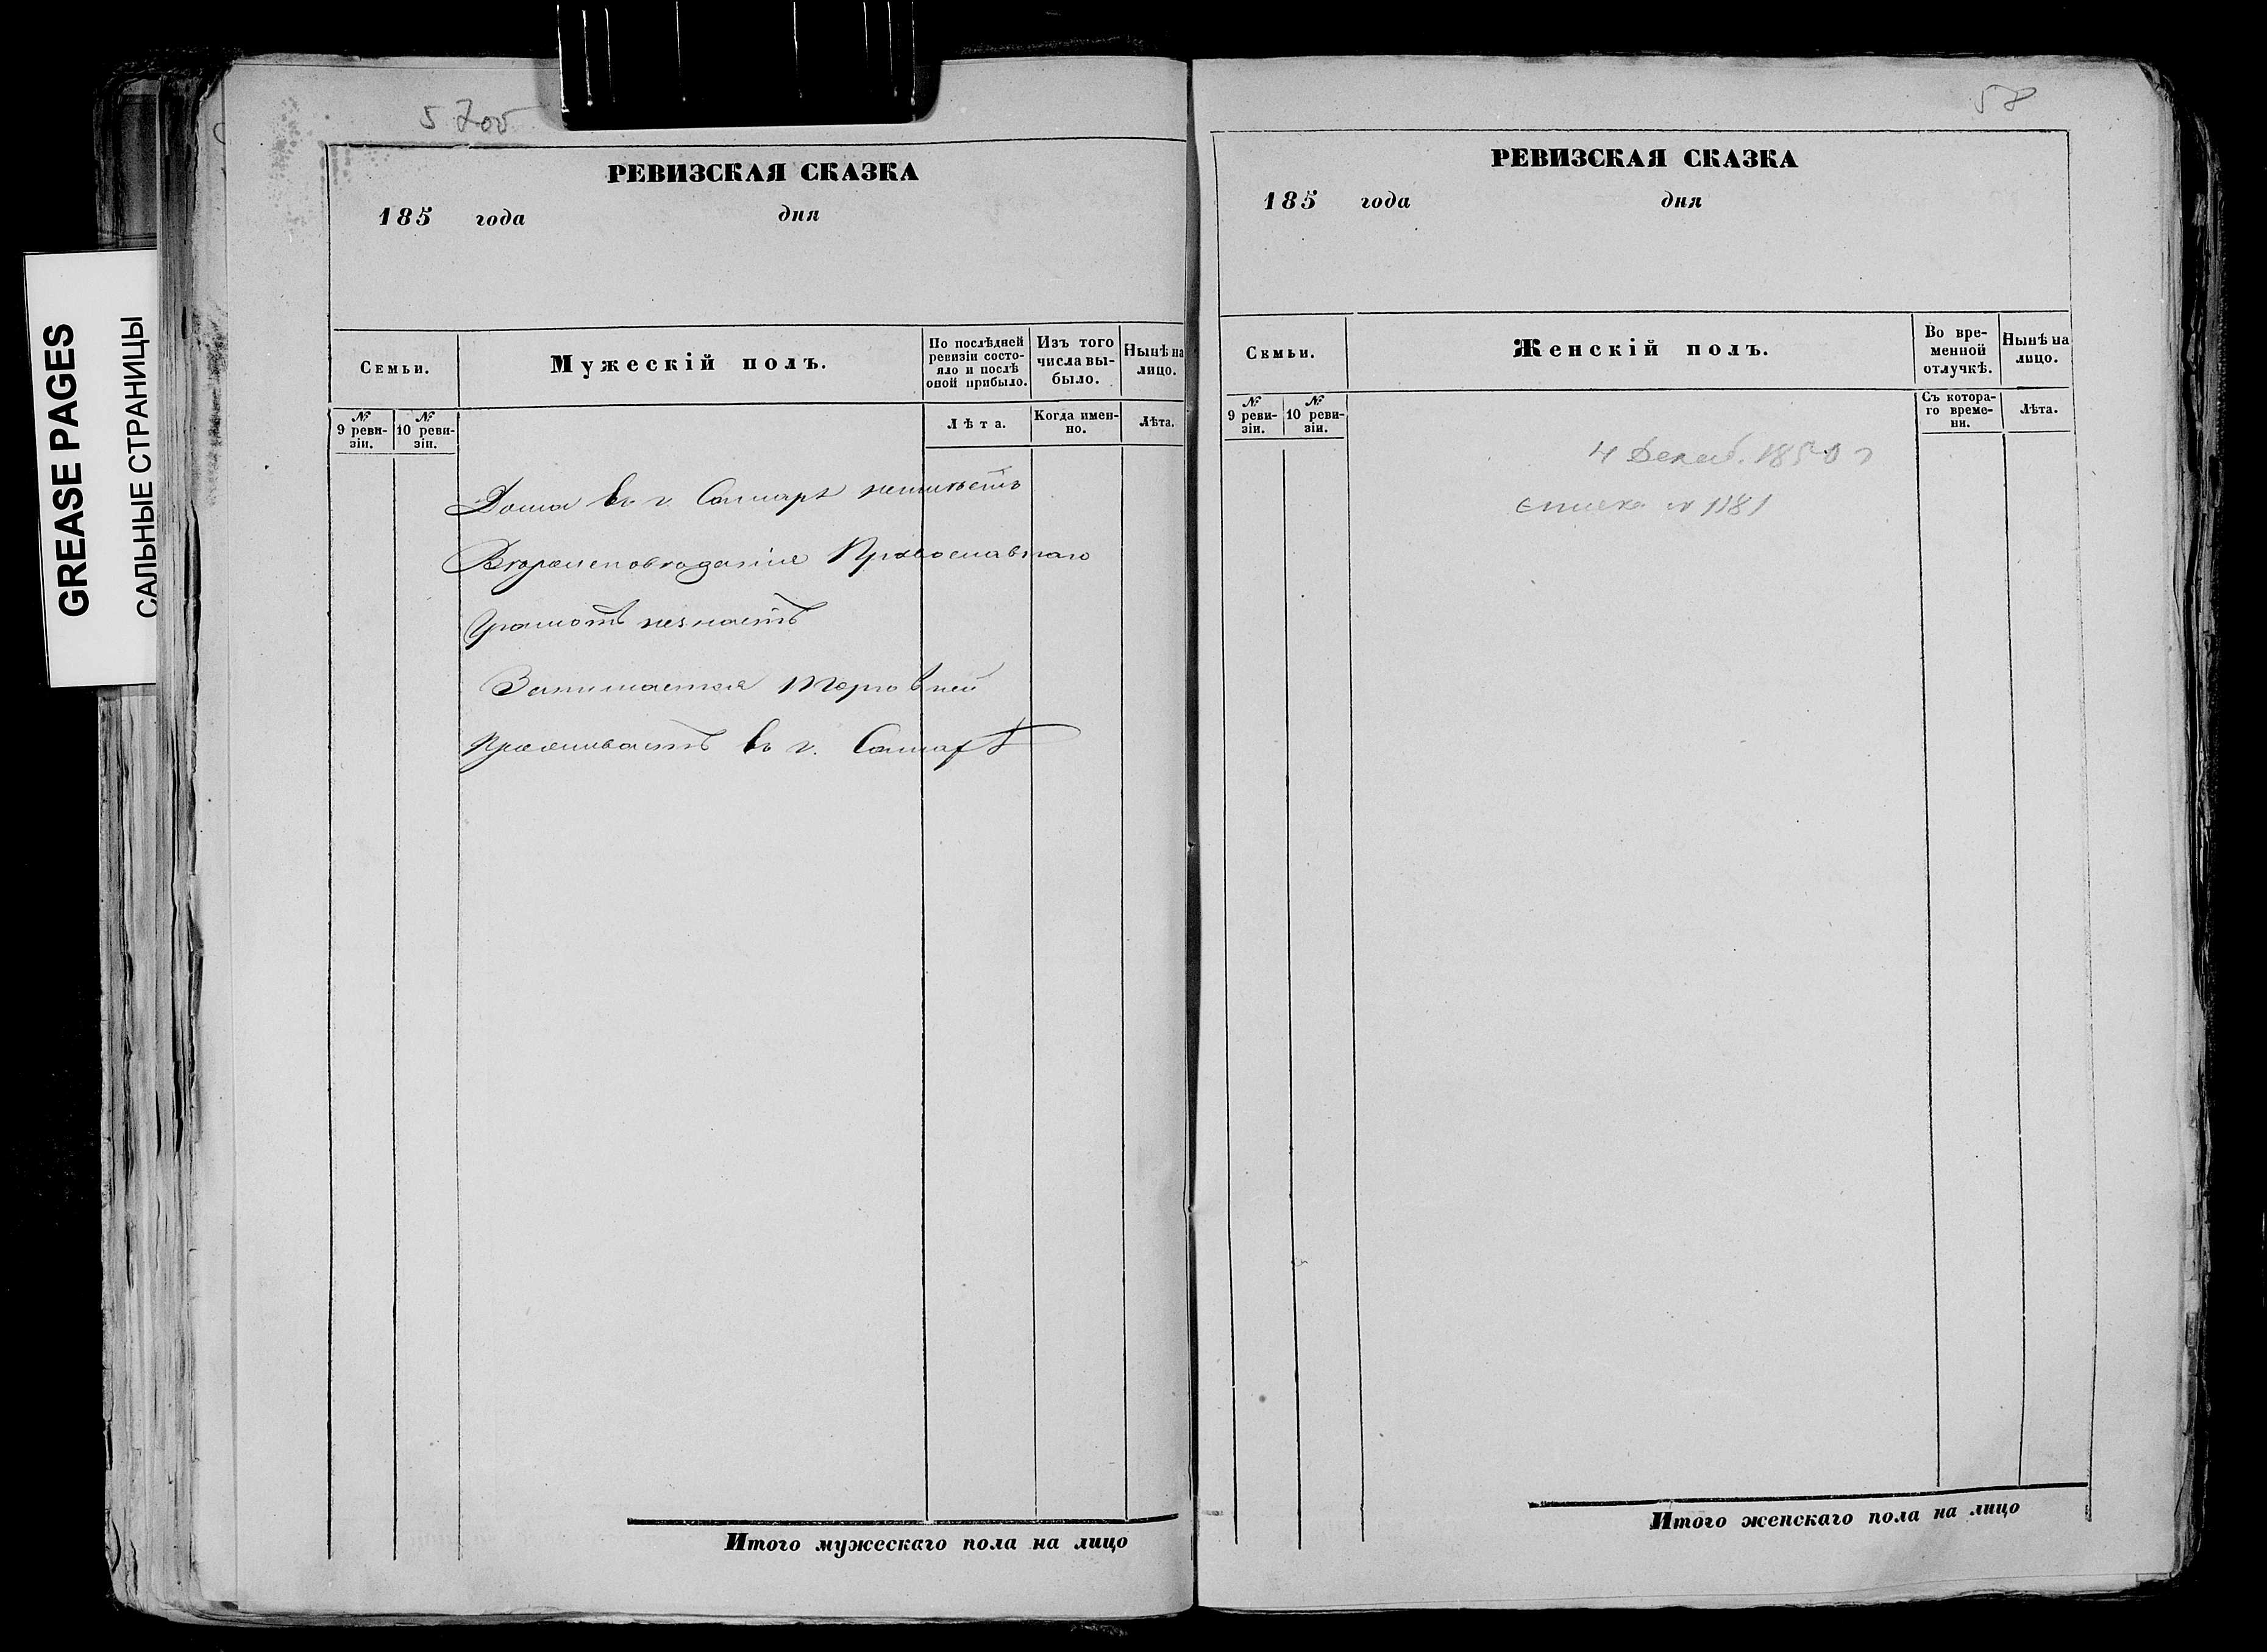 GREASE PAGES
САЛЬНЫЕ СТРАНИЦЫ
РЕВИЗСКАЯ СКАЗКА
185 года дня
Семьи.
Мужескій полъ.
По послѣдней ревизіи состояло и послѣ оной прибыло.
Изъ того числа выбыло.
Нынѣ на лицо.
№ 9 ревизіи.
№ 10 ревизіи.
Лѣта.
Когда именно.
Лѣта.
Дома въ г. Самарѣ неимѣетъ
Вѣроисповѣданія Православнаго
Грамотѣ незнаетъ
Занимается торговлей
Проживаетъ въ г. Самарѣ
Итого мужескаго пола на лицо
58
РЕВИЗСКАЯ СКАЗКА
185 года дня
Семьи.
Женскій полъ.
Во временной отлучкѣ.
Нынѣ на лицо.
№ 9 ревизіи.
№ 10 ревизіи.
Съ котораго времени.
Лѣта.
4 Декаб. 1850 г
Итого женскаго пола на лицо